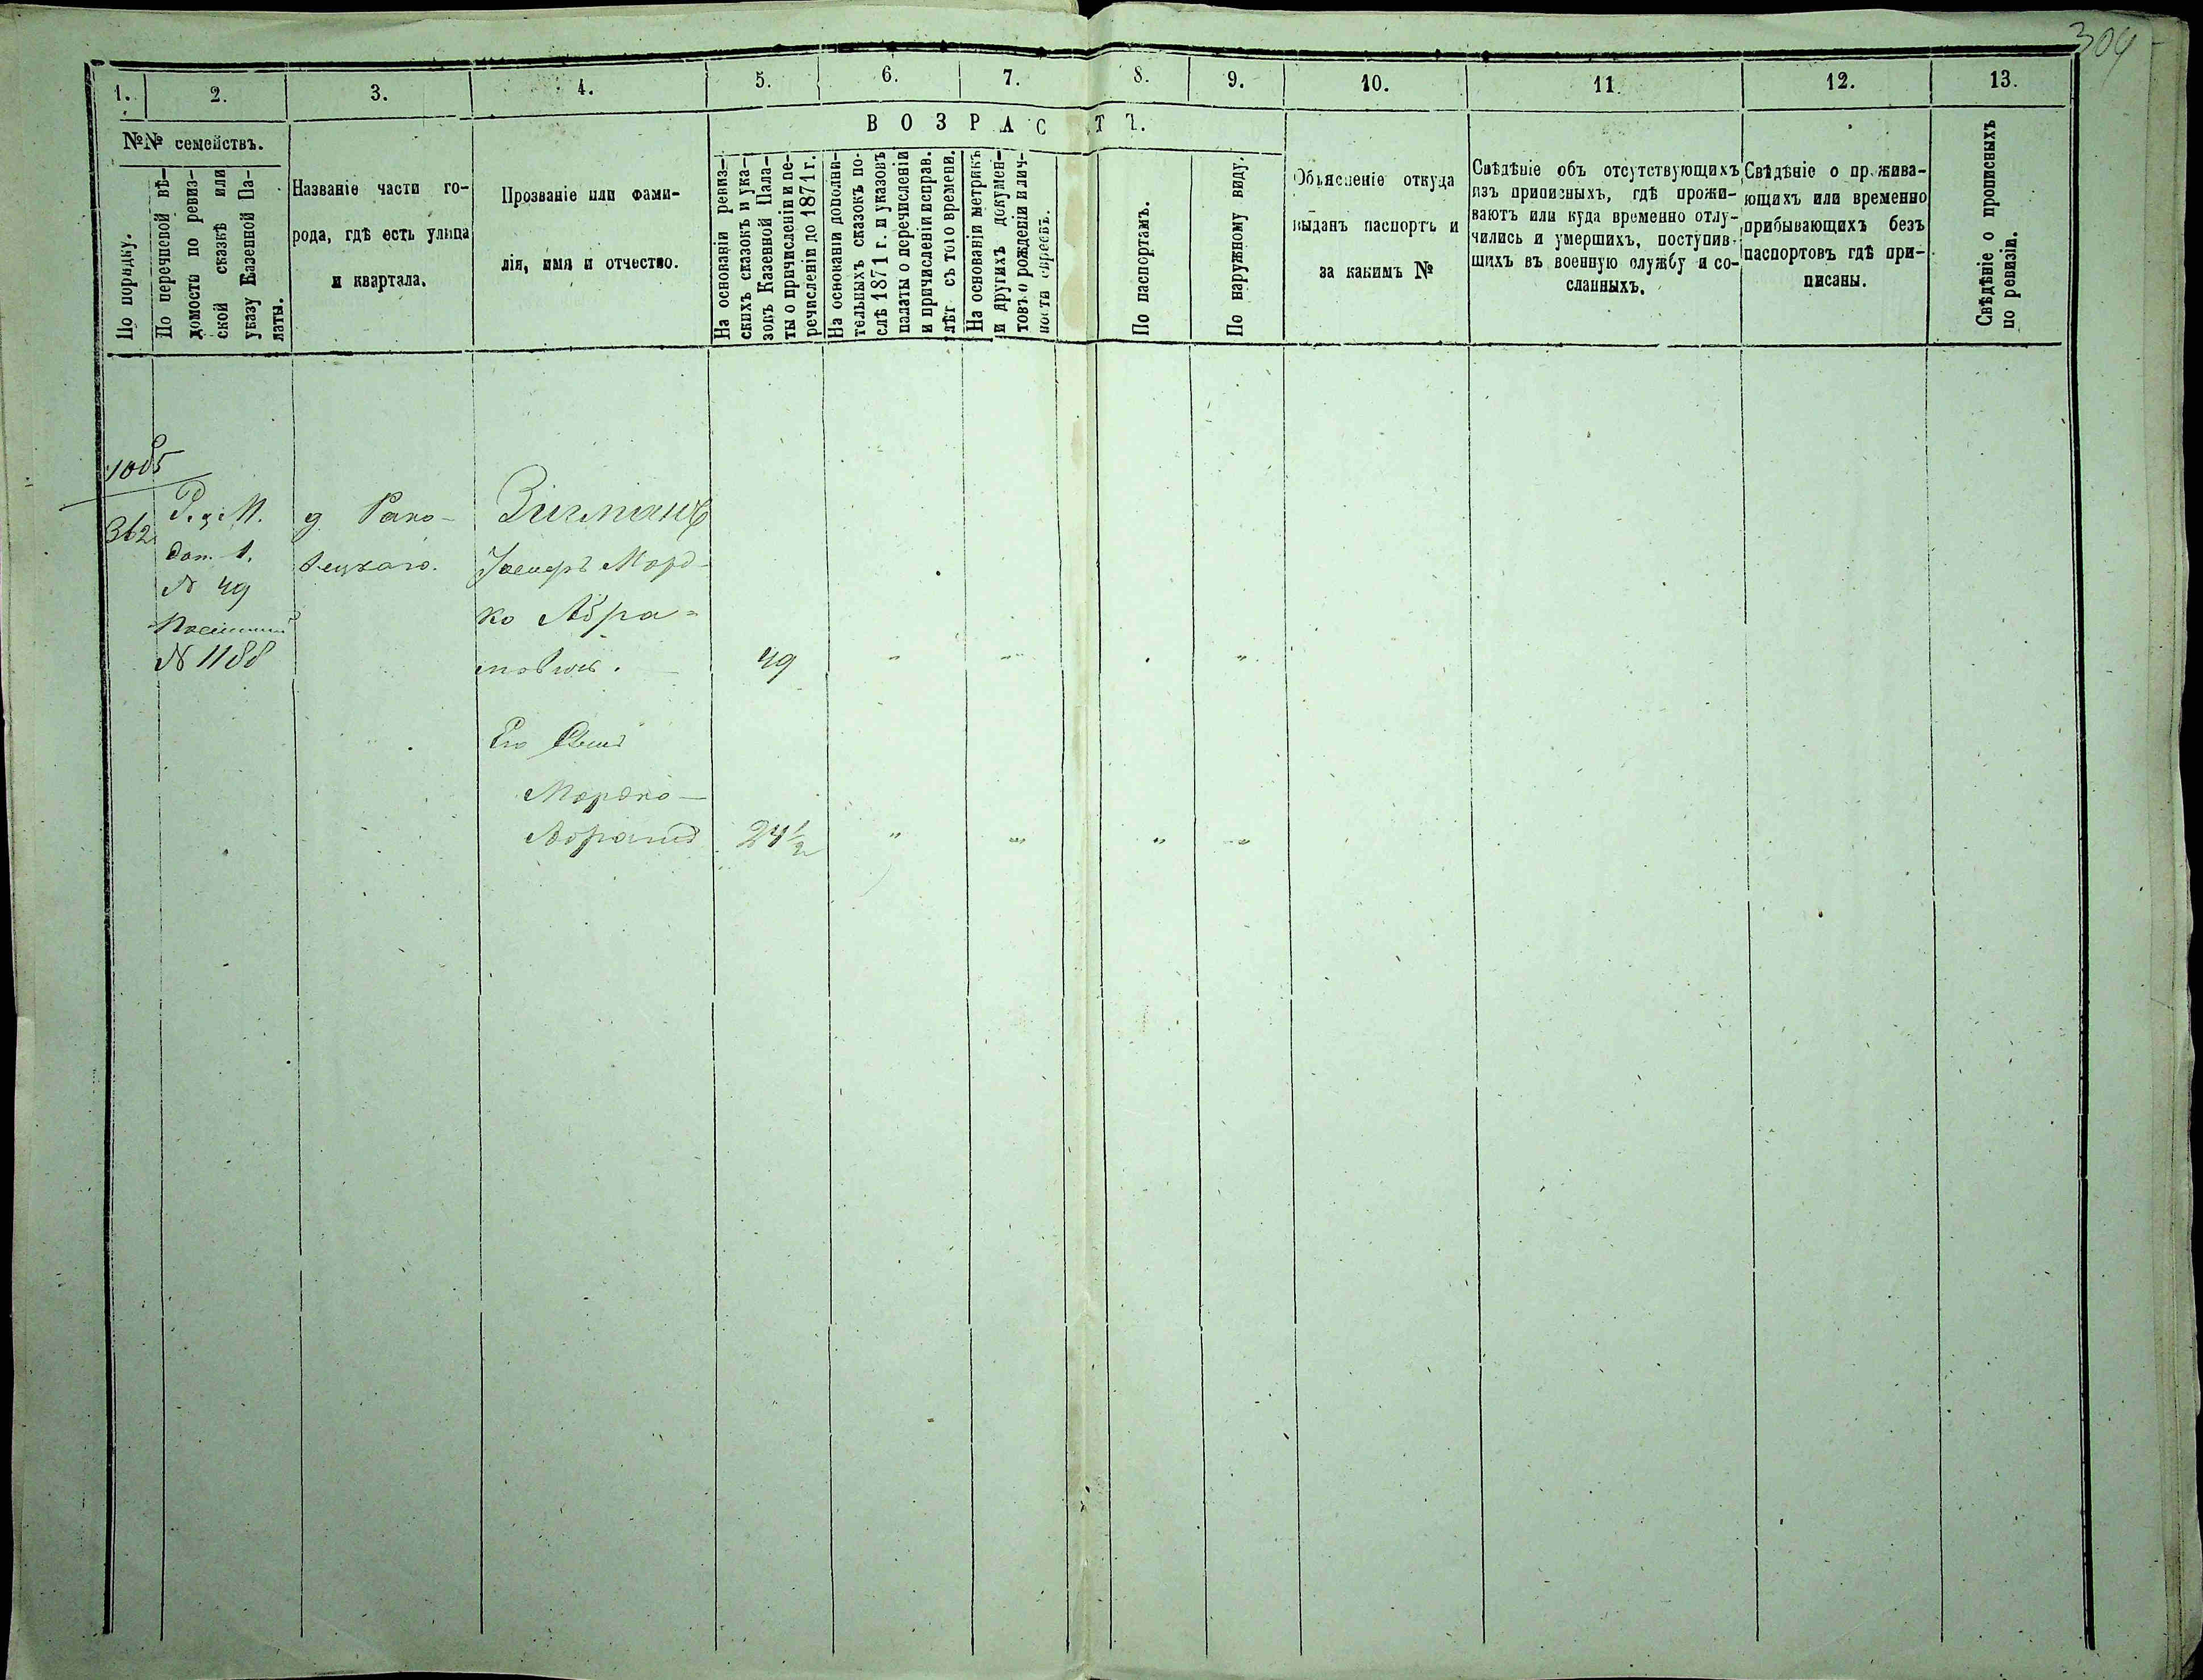 309
1. 2. 3. 4. 5. 6. 7. 8. 9. 10. 11. 12. 13.
№№ семействъ.
По порядку.
По перечневой вѣ-
домости по ревиз-
ской сказкѣ или
указу Казенной Па-
латы.
Названіе части го-
рода, гдѣ есть улица
и квартала.
Прозваніе или фами-
лія, имя и отчество.
ВОЗРАСТЪ.
На основаніи ревиз-
скихъ сказокъ и ука-
зовъ Казенной Пала-
ты о причисленіи и пе-
речисленіи до 1871 г.
На основаніи дополни-
тельныхъ сказокъ по-
слѣ 1871 г. и указовъ
палаты о перечисленіи
и причисленіи исправ.
лѣт съ того времени.
На основаніи метрикъ
и другихъ докумен-
товъ о рожденіи и лич-
ности евреевъ.
По паспортамъ.
По наружному виду.
Объясненіе откуда
выданъ паспортъ и
за какимъ №
Свѣдѣніе объ отсутствующихъ
изъ приписныхъ, гдѣ прожи-
ваютъ или куда временно отлу-
чились и умершихъ, поступив-
шихъ въ военную службу и со-
сланныхъ.
Свѣдѣніе о прожива-
ющихъ или временно
прибывающихъ безъ
паспортовъ гдѣ при-
писаны.
Свѣдѣніе о прописныхъ
по ревизіи.
1085
362
доп. 1.
№ 49
№ 1188
Зигманъ
Морд-
ко Абра-
мовичъ. 49 " " " "
Его Сынъ
Мордко-
Абрамъ 24 1/2 " " " "